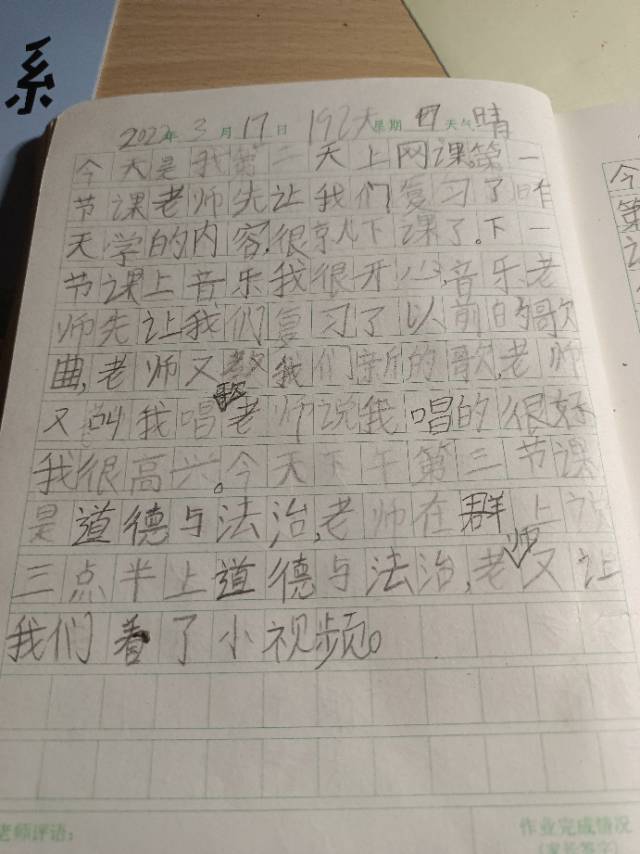 系
2022年3月17日 192天 星期四 天气晴
今天是我第二天上网课。第一
节课老师先让我们复习了昨
天学的内容,很快儿下课了。下一
节课上音乐我很开心,音乐老
师先让我们复习了以前的歌
曲,老师又教我们新的歌,老师
又叫我唱歌老师说我唱的很好
我很高兴。今天下午第三节课
是道德与法治,老师在群上说
三点半上道德与法治,老师又让
我们看了小视频。
老师评语:
作业完成情况
(家长签字)
今
第